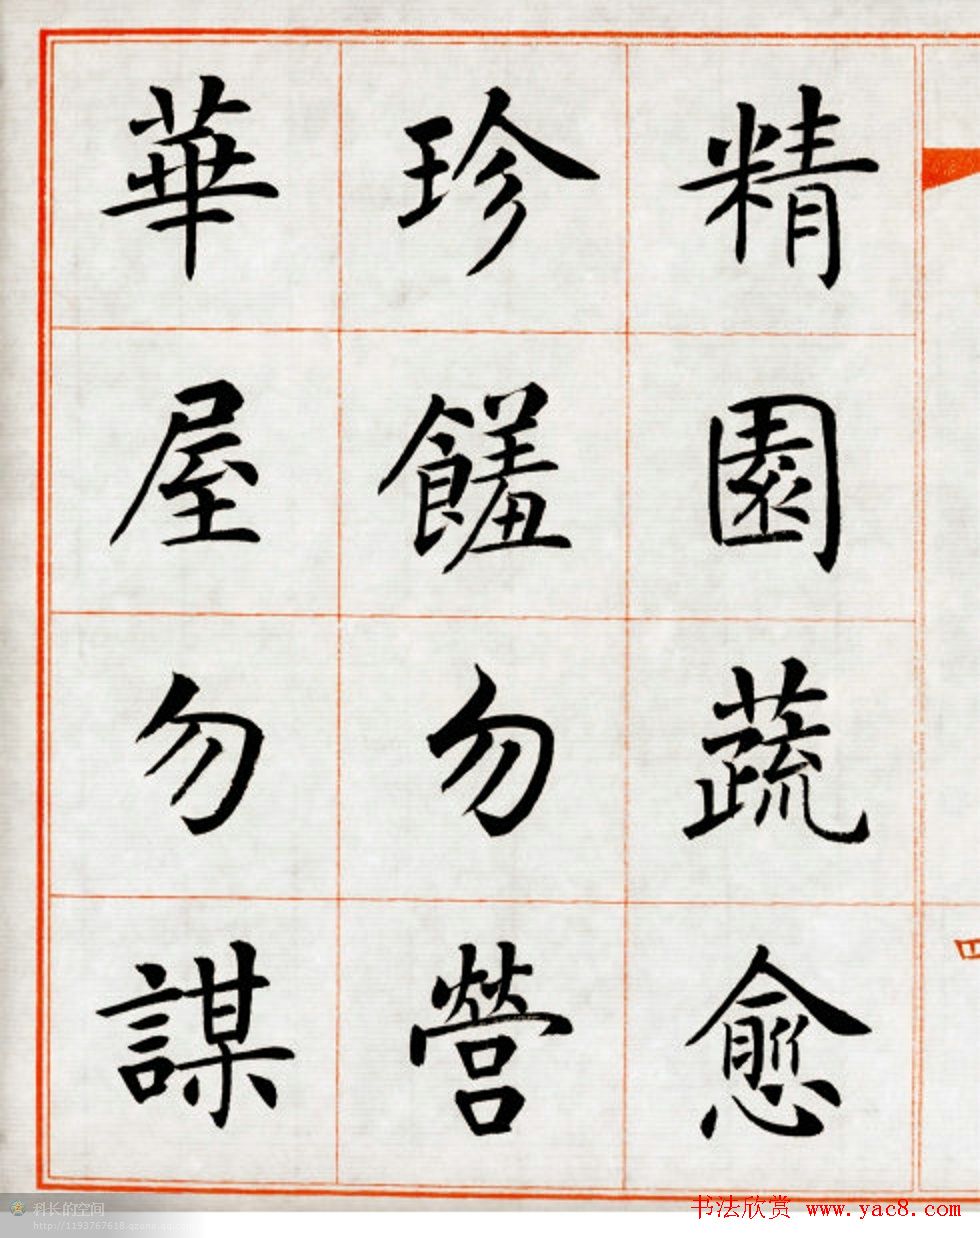 精園蔬愈
珍饈勿營
華屋勿謀
四
科长的空间
http://1193767618.qzone.qq.com
书法欣赏 www.yac8.com